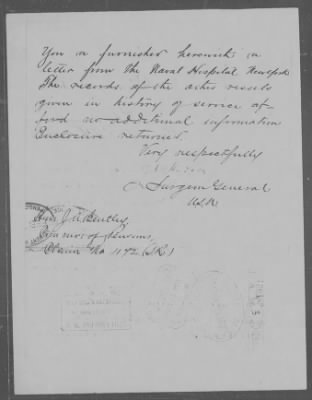 You are furnished herewith a
letter from the Naval Hospital New York
The records of the other vessels
given in history of service af-
ford no additional information
Enclosure returned.
Very respectfully
Surgeon General
U.S.N.
Hon. J. A. Bentley,
Com'nr of Pensions,
Claim No 1172 (S.R.)